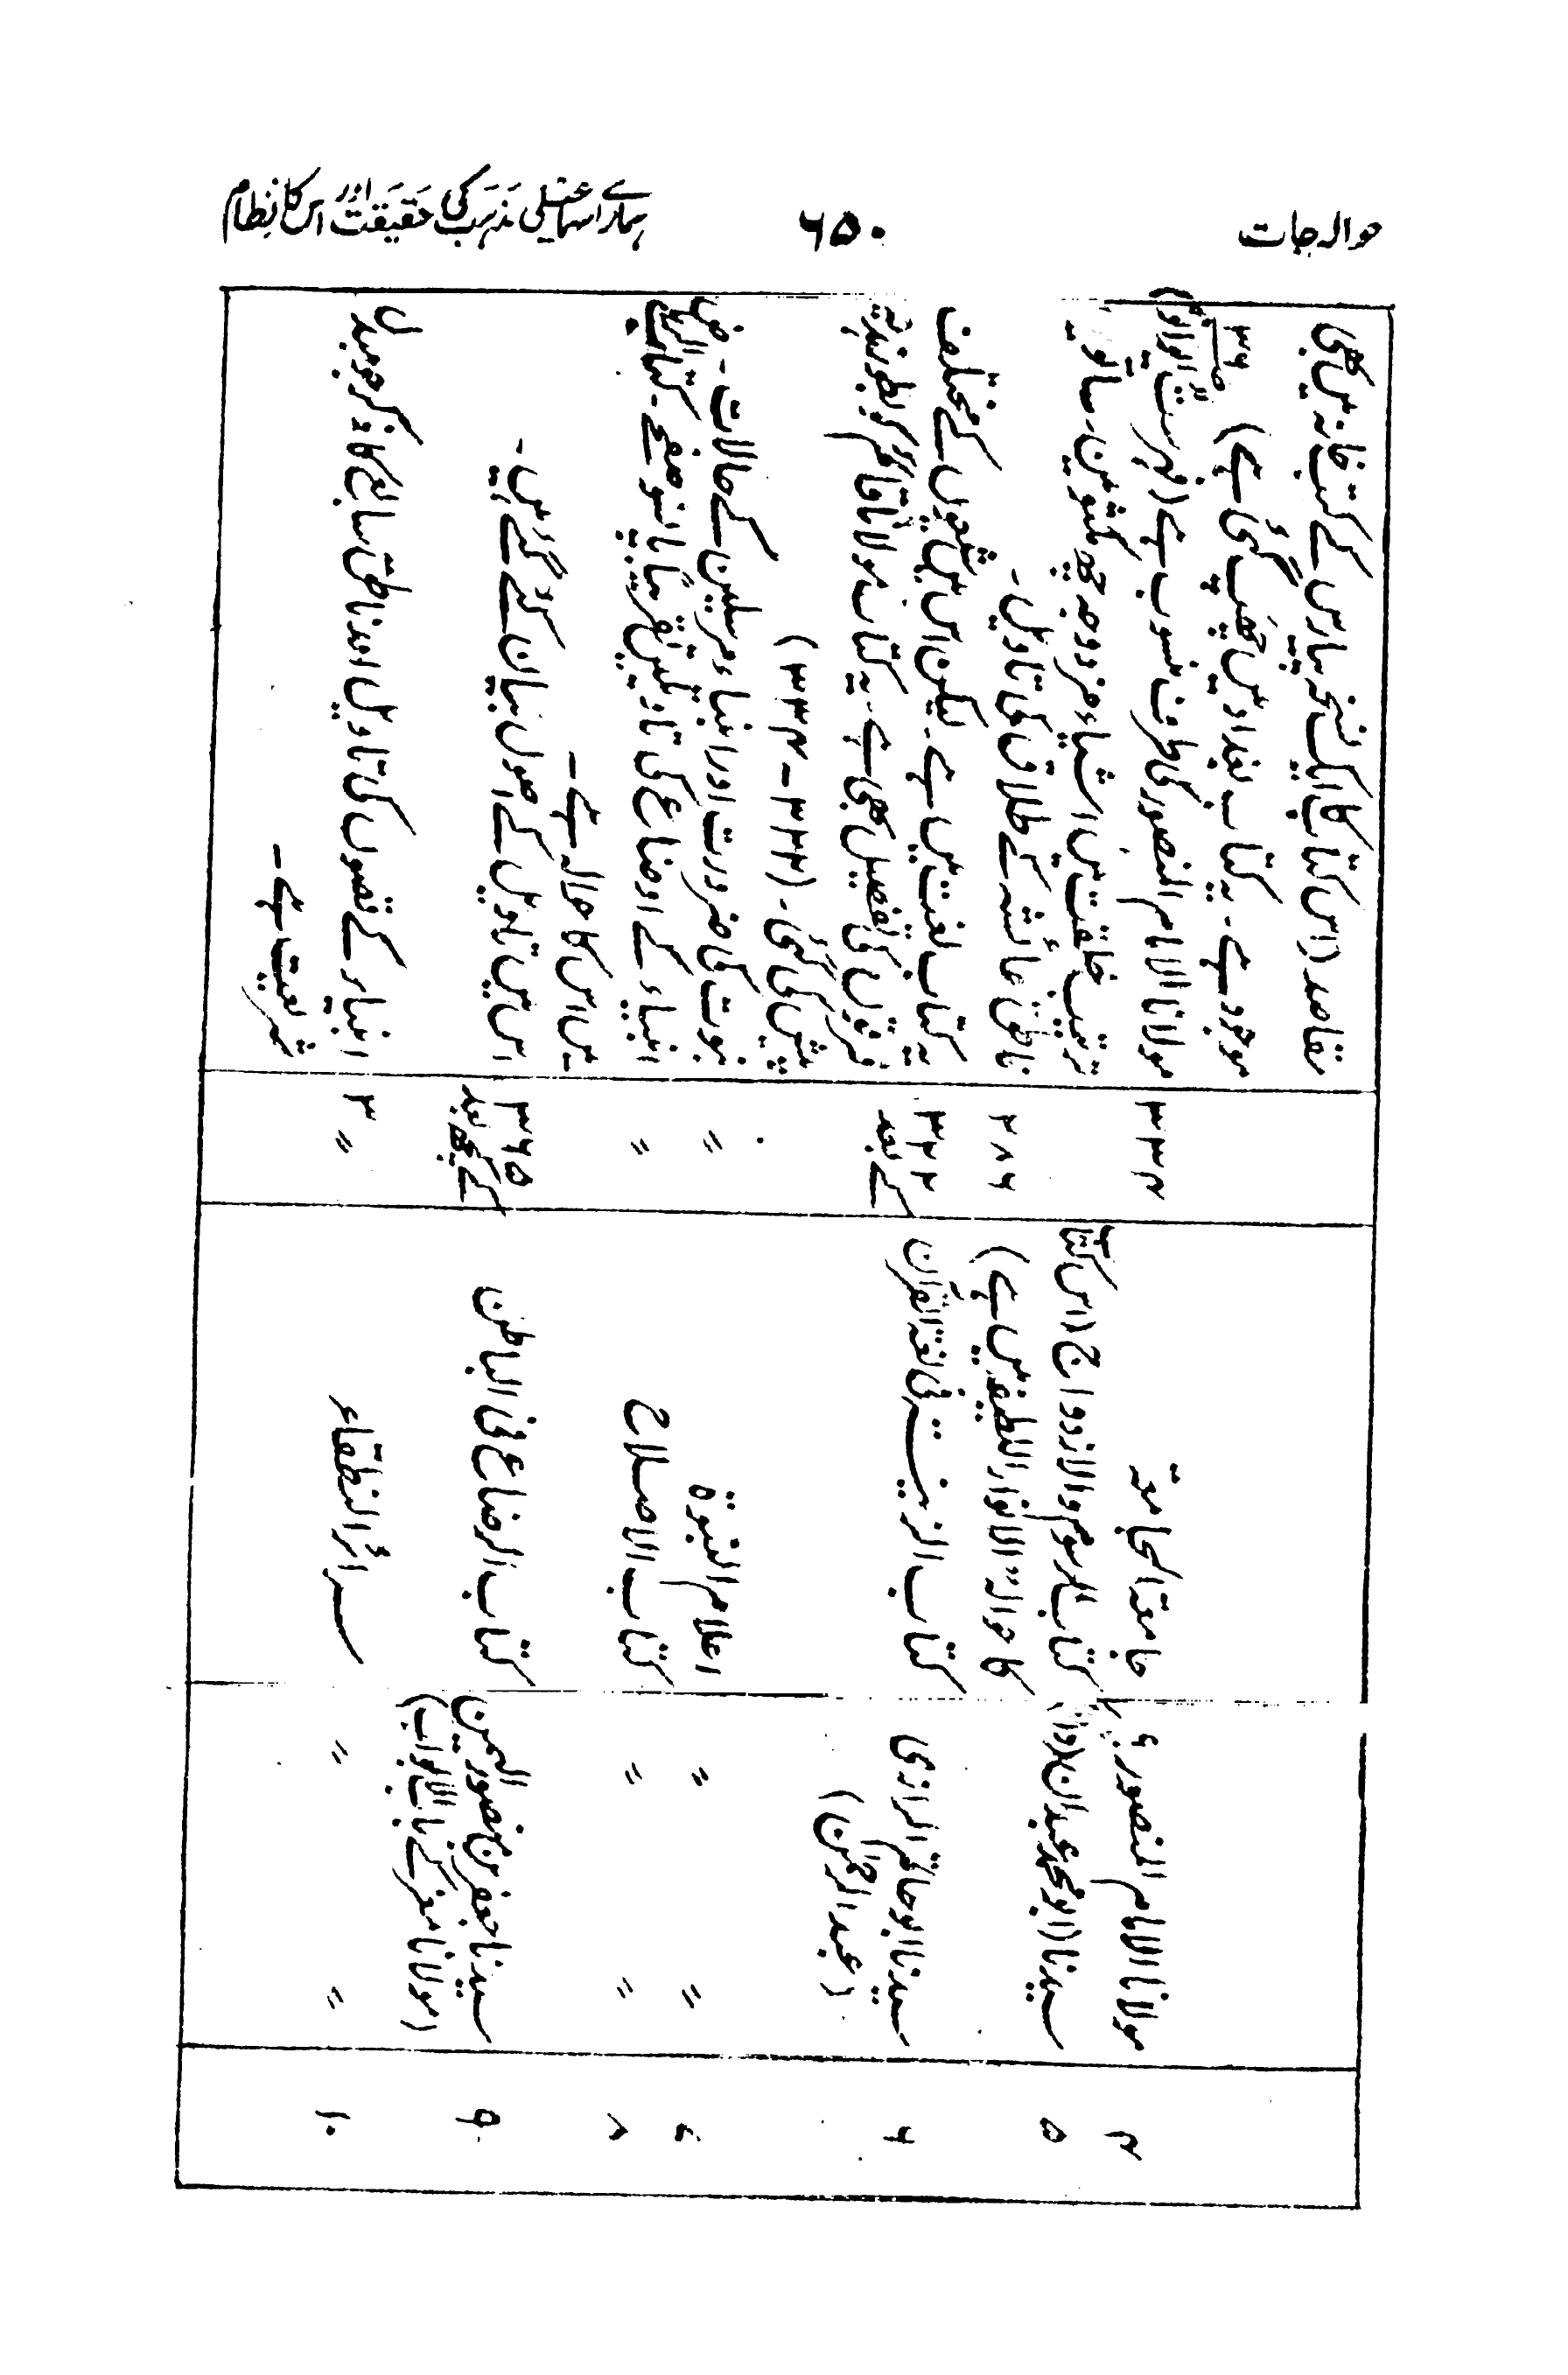 حوالہ جات
۶۵۰
ہمارے اسماعیلی مذہب کی حقیقت اور اس کا نظام
مقاصد (اس کتاب کا ایک نسخہ پیارس کے کتب خانہ میں بھی
موجود ہے۔ یہ کتاب بغداد میں چھپ گئی ہے) ص ۳۶
۴
مولانا الامام المنصور
جامعۃ الجامعۃ
۳۳۴
مولانا الامام المنصور کی طرف منسوب ہے (فہرست
۵
سیدنا (ابو محمد عبدان
کتاب الرسوم والازدواج (اس کتاب
کا حوالہ "الانوار اللطیفہ میں ہے)
۲۸۶
ترتیب خلقت میں اشیاء مزدوجہ
ناطق عائشہ کے طلاق کی تاویل۔
۶
سیدنا ابو حاتم الرازی
(عبد الرحمٰن)
کتاب الزینۃ فی لغۃ القرآن
۳۲۲
کے بعد
یہ کتاب لغت میں ہے۔ لیکن اس میں شیعوں کے مختلف
فرقوں کی تفصیل بھی ہے۔ یہ کتاب مولانا قائم کو بطور نذر
پیش کی گئی۔ (۳۲۲ - ۳۳۴)
۷
〃 〃
اعلام النبوۃ
〃
نبوت کی ضرورت اور انبیاء مرسلین کے حالات۔
۸
〃 〃
کتاب الاصلاح
〃
انبیاء کے اوضاع کی تاویلیں تقریباً پانسو صفحے۔ کتاب
میں اس کا حوالہ ہے۔
۹
سیدنا جعفر بن منصور الیمن
(مولانا معز کے باب الابواب)
کتاب الرضاع فی الباطن
۳۶۵
کے کچھ بعد
اس میں تاویل کے اصول بیان کئے گئے ہیں۔
۱۰
〃 〃
سرائر النطقاء
〃 ۳
انبیاء کے قصوں کی تاویل اور ناطق سابع کا ذکر جو مبدل
شریعت ہے۔